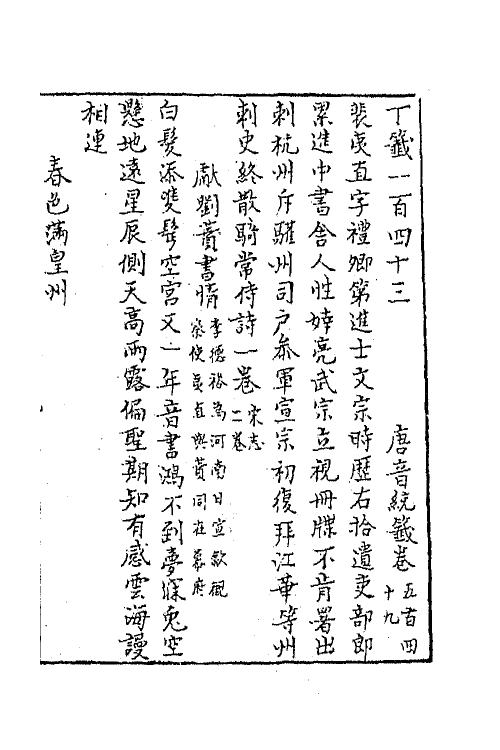 丁籤一百四十三　唐音統籤卷五百四十九
裴夷直字禮卿第進士文宗時歷右拾遺吏部郎
累進中書舍人性婞亮武宗立視冊牒不肯署出
刺杭州斥驩州司戶參軍宣宗初復拜江華等州
刺史終散騎常侍詩一卷宋志二卷
獻劉蕡書情李德裕為河南日宣歙觀察使夷直與蕡同在幕府
白髮添雙鬢空宮又一年音書鴻不到夢寐兎空
懸地遠星辰側天高雨露偏聖期知有感雲海謾
相連
春色滿皇州